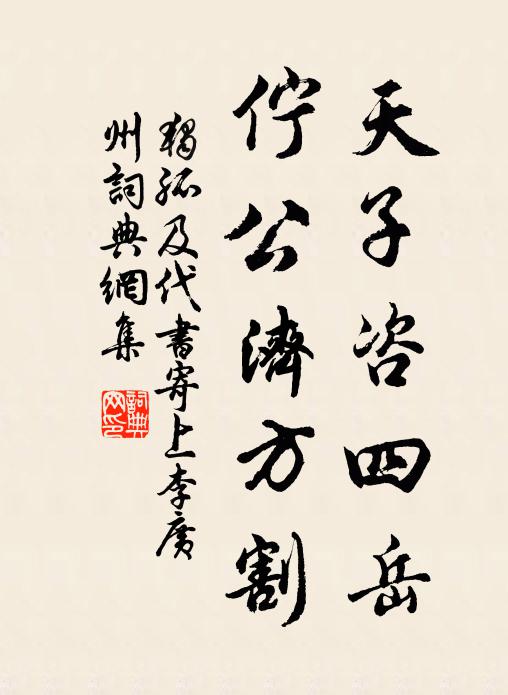 天子咨四岳
佇公濟方割
獨孤及代書寄上李廣
州詞典網集
詞典
网印